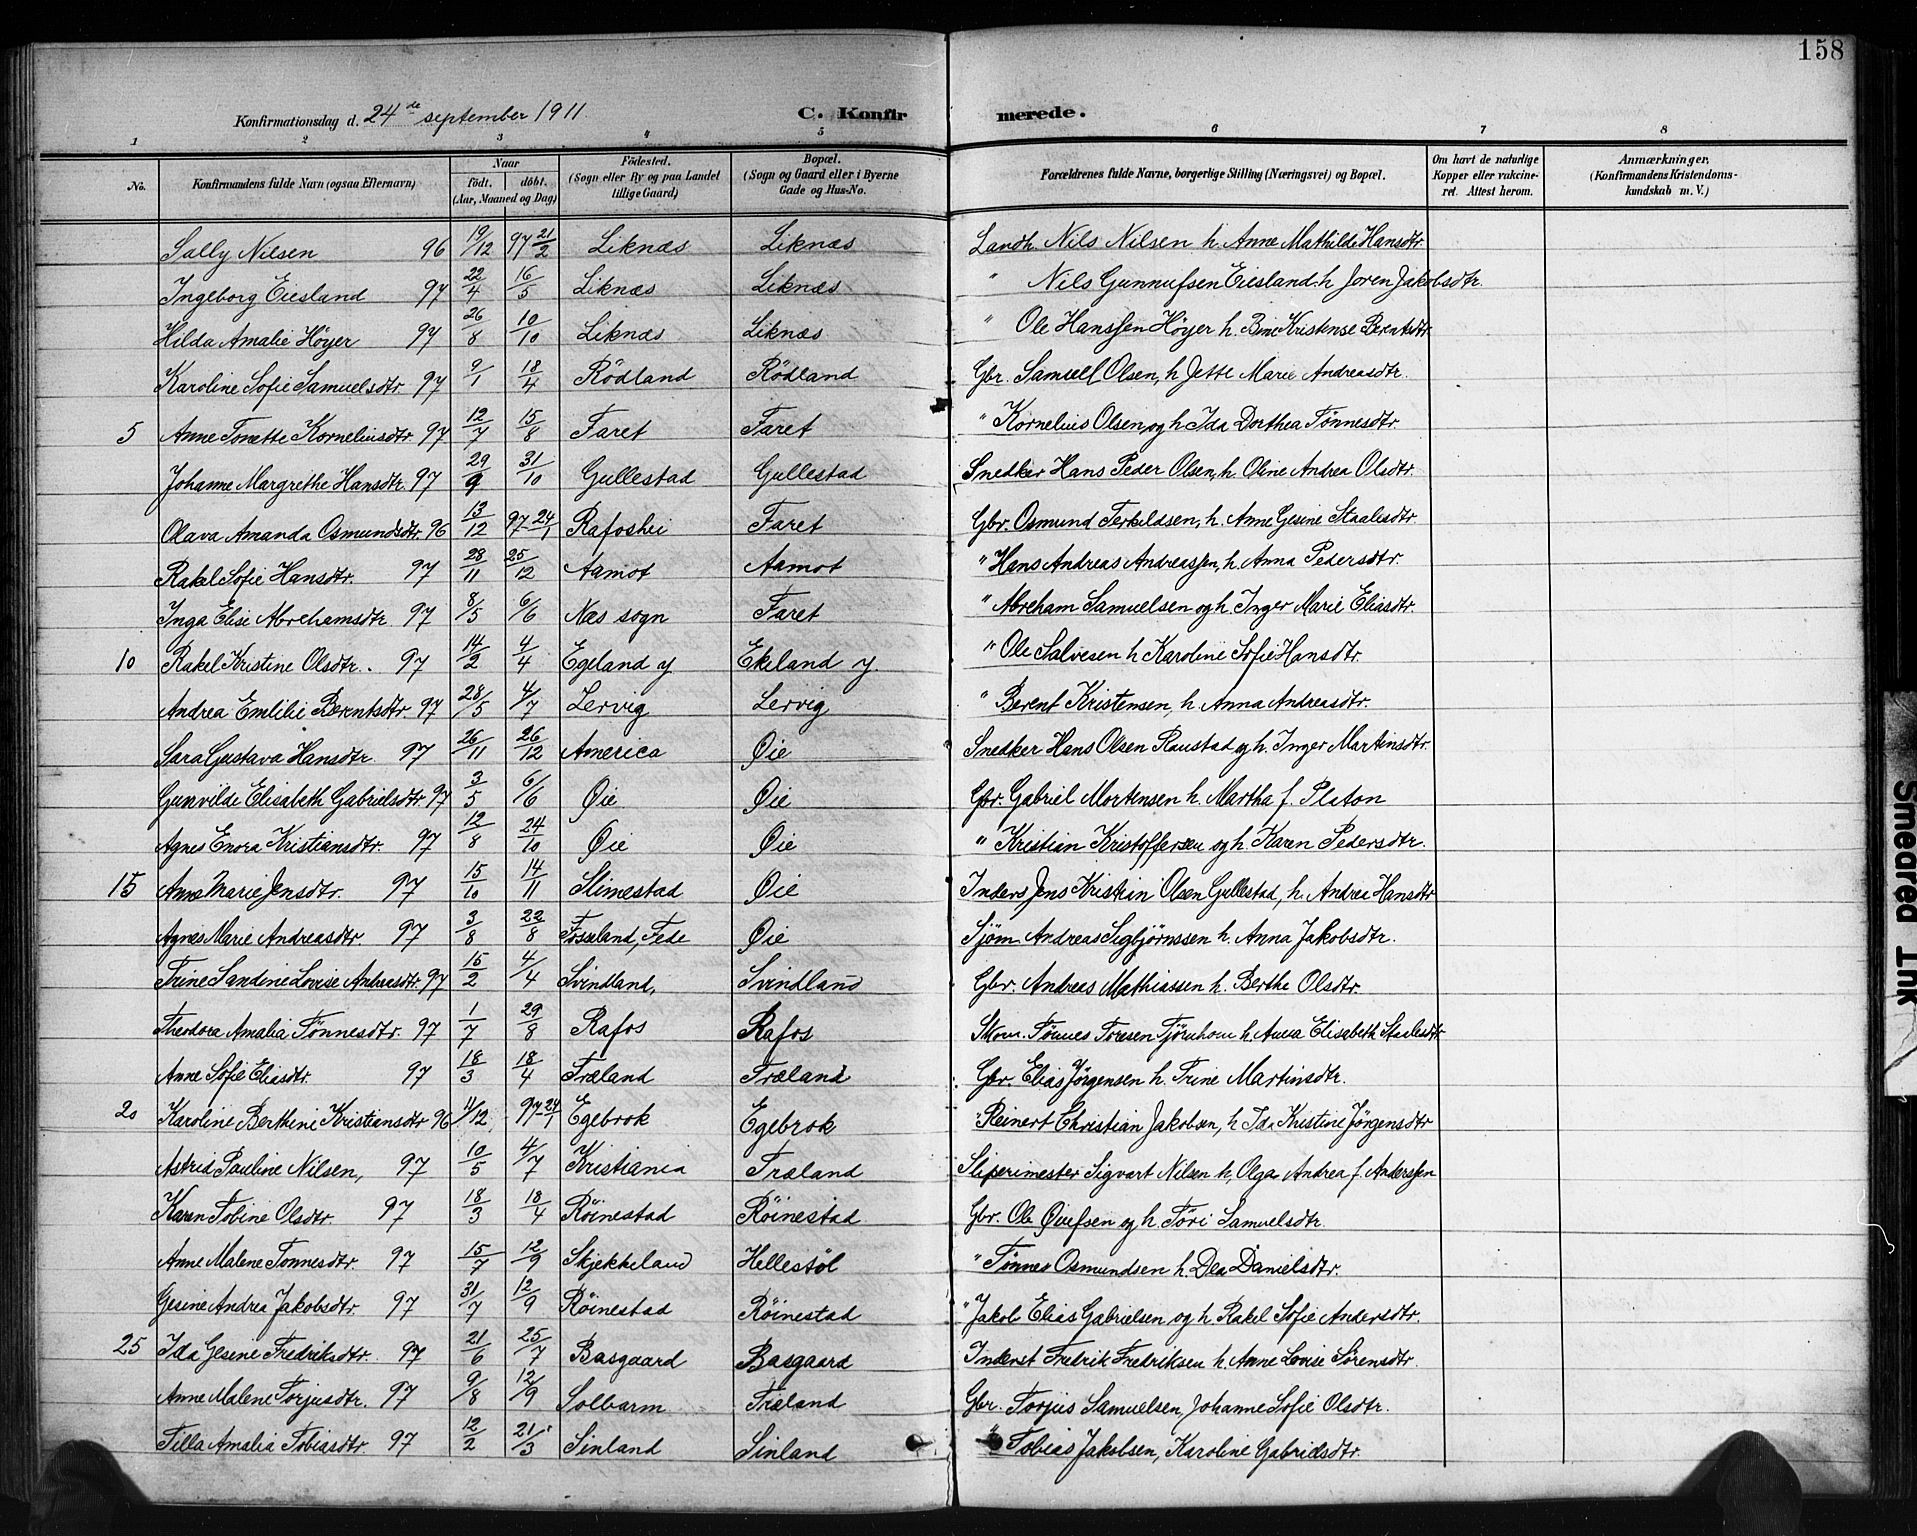 158
Konfirmationsdag d. 24de september 1911 C. Konfirmerede.
1 2 3 4 5 6 7 8
No. Konfirmandens fulde Navn (ogsaa Efternavn) Naar født, døbt. (Aar, Maaned og Dag) Fødested. (Sogn eller By og paa Landet tillige Gaard) Bopæl. (Sogn og Gaard eller i Byerne Gade og Hus-No. Forældrenes fulde Navne, borgerlige Stilling (Næringsvei) og Bopæl. Om havt de naturlige Kopper eller vakcineret. Attest herom. Anmærkninger, (Konfirmandens Kristendomskundskab m. V.)
Sally Nilsen 96 19/12 97 21/2 Liknæs Liknæs Landh. Nils Nilsen h. Anne Mathilde Hansdtr.
Ingeborg Eiesland 97 22/4 16/5 Liknæs Liknæs " Nils Gunnufsen Eiesland h Joren Jakobsdtr.
Hilda Amalie Höyer 97 26/8 10/10 Liknæs Liknæs " Ole Hanssen Höyer h. Bine Kristense Berntsdtr
Karoline Sofie Samuelsdtr 97 9/1 18/4 Rödland Rödland Gbr. Samuel Olsen, h Jette Marie Andreasdtr.
5 Anne Tonette Korneliusdtr. 97 12/7 15/8 Faret Faret " Kornelius Olsen og h Ida Dorthea Tønnesdtr.
Johanne Margrethe Hansdtr. 97 29/9 31/10 Gullestad Gullestad Snedker Hans Peder Olsen, h. Oline Andrea Olsdtr.
Olava Amanda Osmundsdtr. 96 13/12 97-24/1 Rafoshei Faret Gbr. Osmund Terkildsen, h. Anne Gesine Staalesdtr.
Rakel Sofie Hansdtr. 97 28/11 25/12 Aamot Aamot " Hans Andreas Andreassen, h. Anna Pedersdtr.
Inga Elise Abrehamsdtr 97 8/5 6/6 Næs sogn Faret " Abreham Samuelsen og h. Inger Marie Eliasdtr.
10 Rakel Kristine Olsdtr. 97 14/2 4/4 Egeland y Ekeland y. " Ole Salvesen h Karoline Sofie Hansdtr.
Andrea Emilie Berntsdtr. 97 28/5 4/7 Lervig Lervig " Berent Kristensen, h. Anna Andreasdtr.
Sara Gustava Hansdtr. 97 26/11 26/12 America Øie Snedker Hans Olsen Raustad og h. Inger Martinsdtr.
Gunvilde Elisabeth Gabrielsdtr 97 3/5 6/6 Øie Øie Gbr. Gabriel Mortensen h. Martha f. Platon
Agnes Enora Kristiansdtr. 97 12/8 24/10 Øie Øie " Kristian Kristoffersen og h. Karen Pedersdtr.
15 Anne Marie Jensdtr. 97 15/10 14/11 Slimestad Øie Inders Jens Kristian Olsen Gullestad, h. Andrea Hansdtr
Agnes Marie Andreasdtr 97 3/8 22/8 Fosseland, Fede Øie Sjöm. Andreas Sigbjörnssen h. Anna Jakobsdtr.
Trine Sandine Lovise Andreasdtr. 97 15/2 4/4 Svindland, Svindland Gbr. Andreas Mathiassen h. Berthe Olsdtr.
Theodora Amalia Tønnesdtr. 97 1/7 29/8 Rafos Rafos Skom. Tønnes Toresen Tjörnhom h Anna Elisabeth Staalesdtr
Anne Sofie Eliasdtr. 97 18/3 18/4 Træland Træland Gbr. Elias Jørgensen h. Trine Martinsdtr.
20 Karoline Berthine Kristiansdtr 96 11/12 97-24/1 Egebrok Egebrok " Reinert Christian Jakobsen, h Ida Kristine Jörgensdtr
Astrid Pauline Nilsen, 97 10/5 4/7 Kristiania Træland Sliperimester Sigvart Nilsen h, Olga Andrea f. Anderssen
Karen Tobine Olsdtr. 97 18/3 18/4 Röinestad Röinestad Gbr. Ole Øiufsen og h. Töri Samuelsdtr.
Anne Malene Tonnesdtr. 97 15/7 12/9 Skjekkeland Hellestöl " Tönnes Osmundsen h. Dea Danielsdtr.
Gesine Andrea Jakobsdtr. 97 31/7 12/9 Röinestad Röinestad " Jakob Elias Gabrielsen og h Rakel Sofie Andersdtr.
25 Ida Gesine Fredriksdtr. 97 21/6 25/7 Basgaard Basgaard Inderst Fredrik Fredriksen h. Anne Lovise Sörensdtr.
Anne Malene Torjusdtr. 97 9/8 12/9 Solbarm Træland Gbr. Torjus Samuelsen, Johanne Sofie Olsdtr.
Tilla Amalia Tobiasdtr. 97 12/2 21/3 Sinland Sinland " Tobias Jakobsen, Karoline Gabrielsdtr.
Smeared Ink